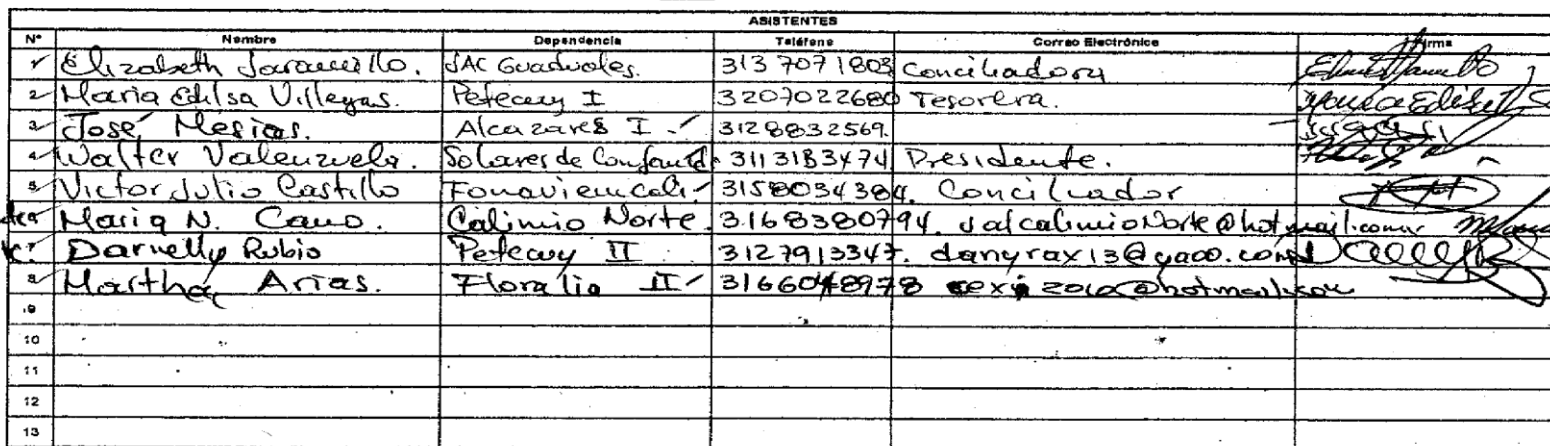 ASISTENTES
N° Nombre Dependencia Teléfono Correo Electrónico Firma
1 Elizabeth Jaramillo. JAC Guaduales. 313 7071803 Conciliadora
2 Maria Edilsa Villegas. Petecuy I 3207022680 Tesorera.
3 José Mesias. Alcazares I 3128832569.
4 Walter Valenzuela. Solares de 3113183474 Presidente.
5 Victor Julio Castillo 3158034384. Conciliador
Maria N. Cano. Calimio Norte. 3168380794.
Darnelly Rubio Petecuy II 3127913347. danyrax13@yaoo.com
8 Martha Arias. Floralia II 3166048978
9
10
11
12
13